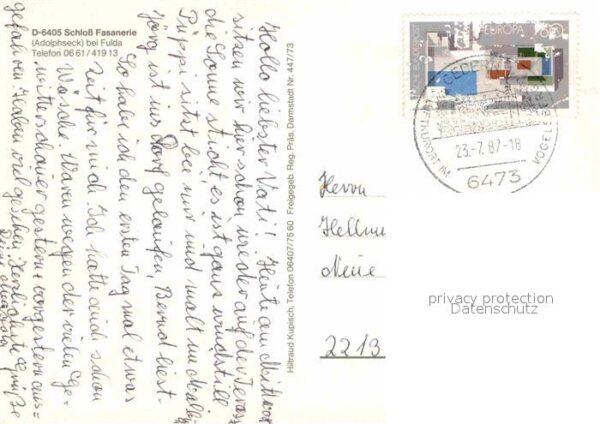 D-6405 Schloß Fasanerie
(Adolphseck) bei Fulda
Telefon 06 61 / 419 13
Hallo liebster Vati! Heute am Mittwoch
sitzen wir hier schon wieder auf der Terasse
die Sonne sticht, es ist ganz windstill
Pippi sitzt bei mir und malt im
Jörg ist ins Dorf gelaufen, Bernd liest.
So habe ich den ersten Tag mal etwas
Zeit für mich. Ich hatte auch schon
Wäsche. Waren wegen der vielen Ge-
witterschauer gestern + vorgestern aus-
gefahren + haben viel gesehen. Herzlichste Grüße
Deine
Hiltraud Kupisch, Telefon 06407/75 60 Freigegeb. Reg. Präs. Darmstadt Nr. 447/73
EUROPA
23.-7. 87-18
LUFTKURORT IM VOGELSBERG
6473
Herrn
Hellmu
Neue
2213
privacy protection
Datenschutz